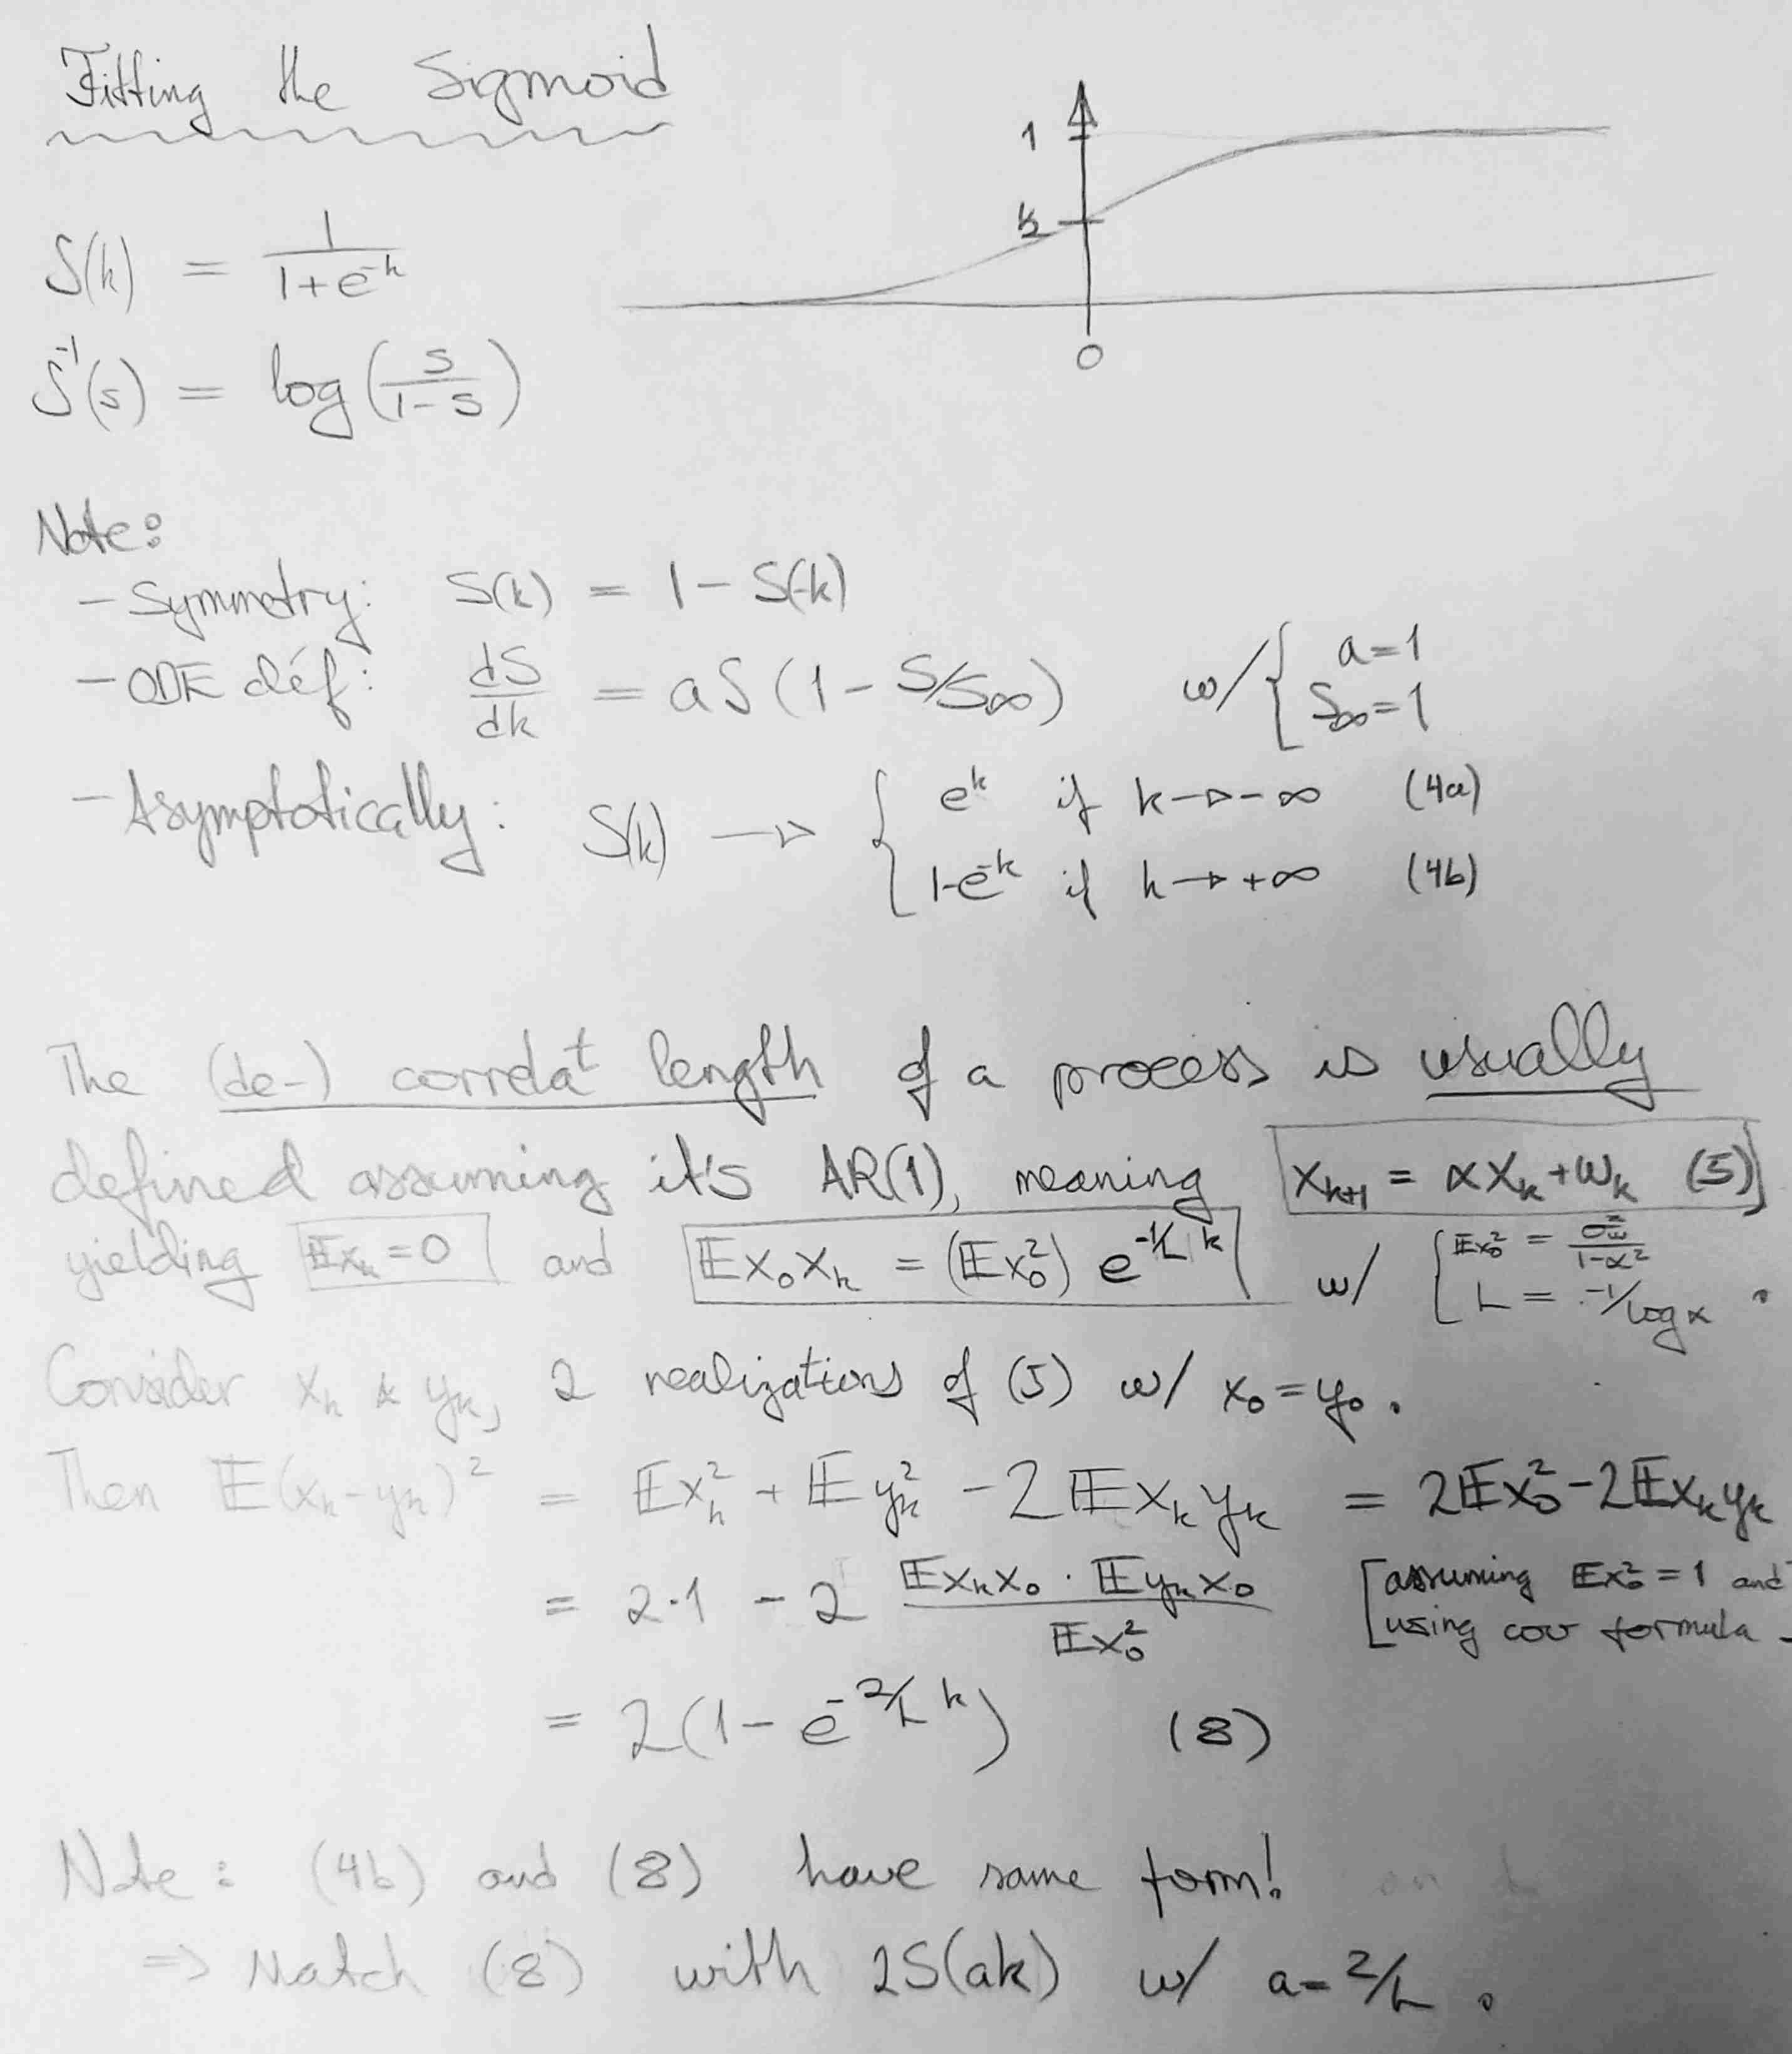 Fitting the Sigmoid
1
½
0
S(k) = 1/(1+e^-k)
S^-1(s) = log(s/(1-s))
Note:
- Symmetry: S(k) = 1 - S(-k)
- ODE def: dS/dk = aS(1 - S/S∞) w/ { a=1, S∞=1
- Asymptotically: S(k) → { e^k if k → -∞ (4a)
1-e^-k if k → +∞ (4b)
The (de-) correlat^t length of a process is usually
defined assuming it's AR(1), meaning x_k+1 = αx_k + w_k (5)
yielding 𝔼x_k = 0 and 𝔼x_0x_k = (𝔼x_0^2) e^-1/L k w/ { 𝔼x_0^2 = σ_w^2/(1-α^2), L = -1/log α .
Consider x_k & y_k, 2 realizations of (5) w/ x_0 = y_0.
Then 𝔼(x_k-y_k)^2 = 𝔼x_k^2 + 𝔼y_k^2 - 2𝔼x_k y_k = 2𝔼x_0^2 - 2𝔼x_k y_k
= 2·1 - 2 (𝔼x_k x_0 · 𝔼y_k x_0)/𝔼x_0^2 [assuming 𝔼x_0^2 = 1 and
using cov formula
= 2(1 - e^-2/L k) (8)
Note: (4b) and (8) have same form!
=> Match (8) with 2S(ak) w/ a = 2/L .